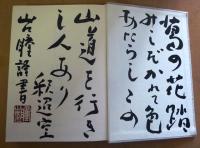 葛の花踏
みしだかれて色
あたらしこの
山道を行き
し人あり 釈迢空
謹書